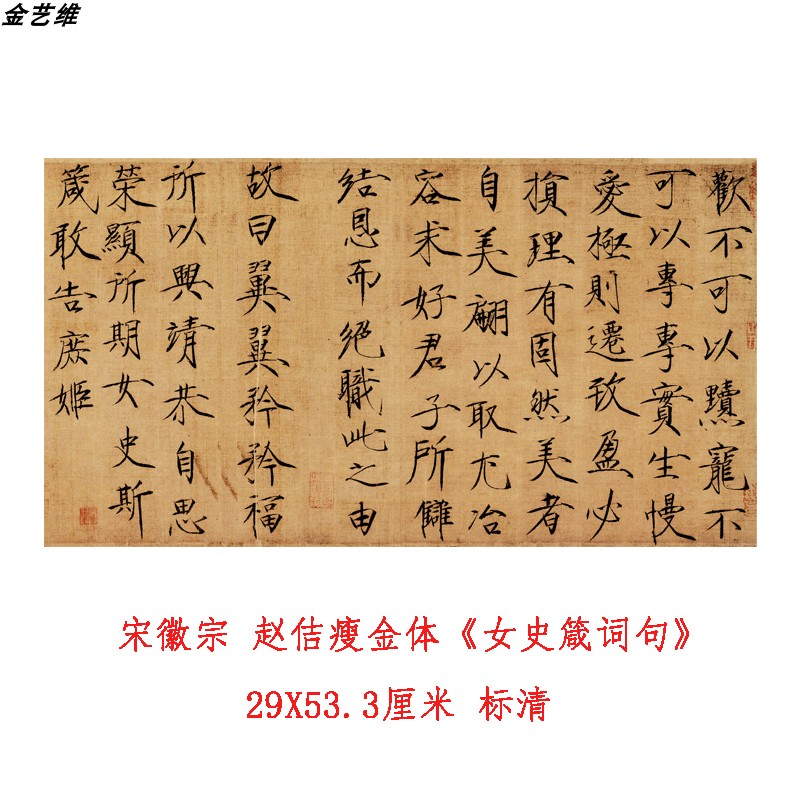 金艺维
歡不可以黷寵不
可以專專實生慢
愛極則遷致盈必
損理有固然美者
自美翩以取尤冶
容求好君子所讎
結恩而絕職此之由
故曰翼翼矜矜福
所以興靖恭自思
榮顯所期女史斯
箴敢告庶姬
宋徽宗 赵佶瘦金体《女史箴词句》
29X53.3厘米 标清